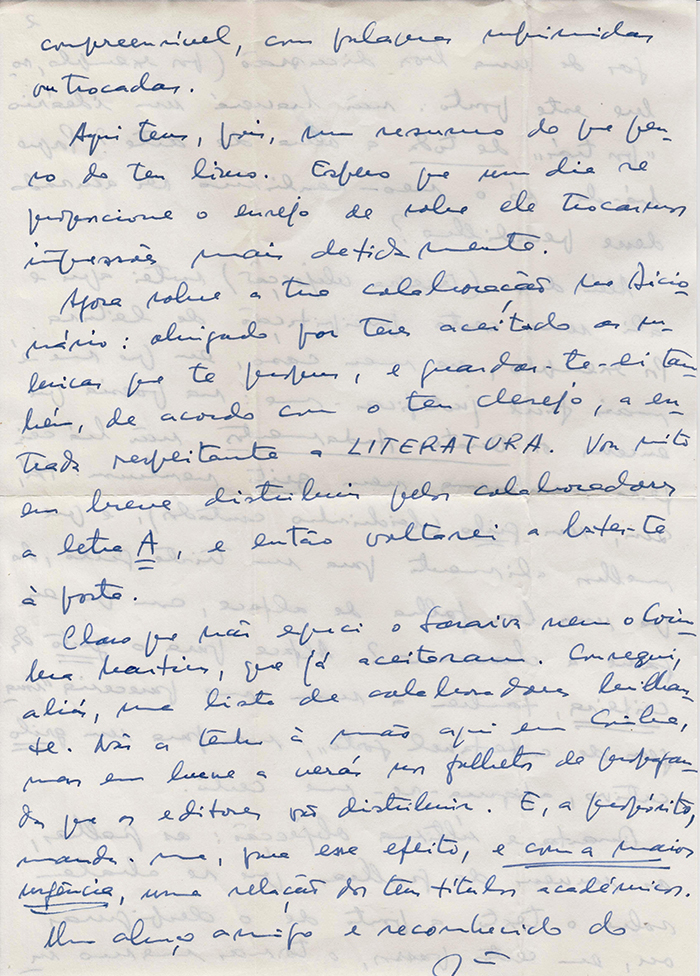 compreensível, com palavras suprimidas
ou trocadas.
Aqui tens, pois, um resumo do que pen-
so do teu livro. Espero que um dia se
proporcione o ensejo de sobre ele trocarmos
impressões mais detidamente.
Agora sobre a tua colaboração no Dicio-
nário: obrigado por teres aceitado as ru-
bricas que te propus, e guardar-te-ei tam-
bém, de acordo com o teu desejo, a en-
trada respeitante a LITERATURA. Vou muito
em breve distribuir pelos colaboradores
a letra A, e então voltarei a bater-te
à porta.
Claro que não esqueci o Saraiva nem o Coim-
bra Martins, que já aceitaram. Consegui,
aliás, uma lista de colaboradores brilhan-
te. Não a tenho à mão aqui em Coimbra,
mas em breve a verás nos folhetos de propagan-
da que os editores vão distribuir. E, a propósito,
manda-me, para esse efeito, e com a maior
urgência, uma relação dos teus títulos académicos.
Um abraço amigo e reconhecido do